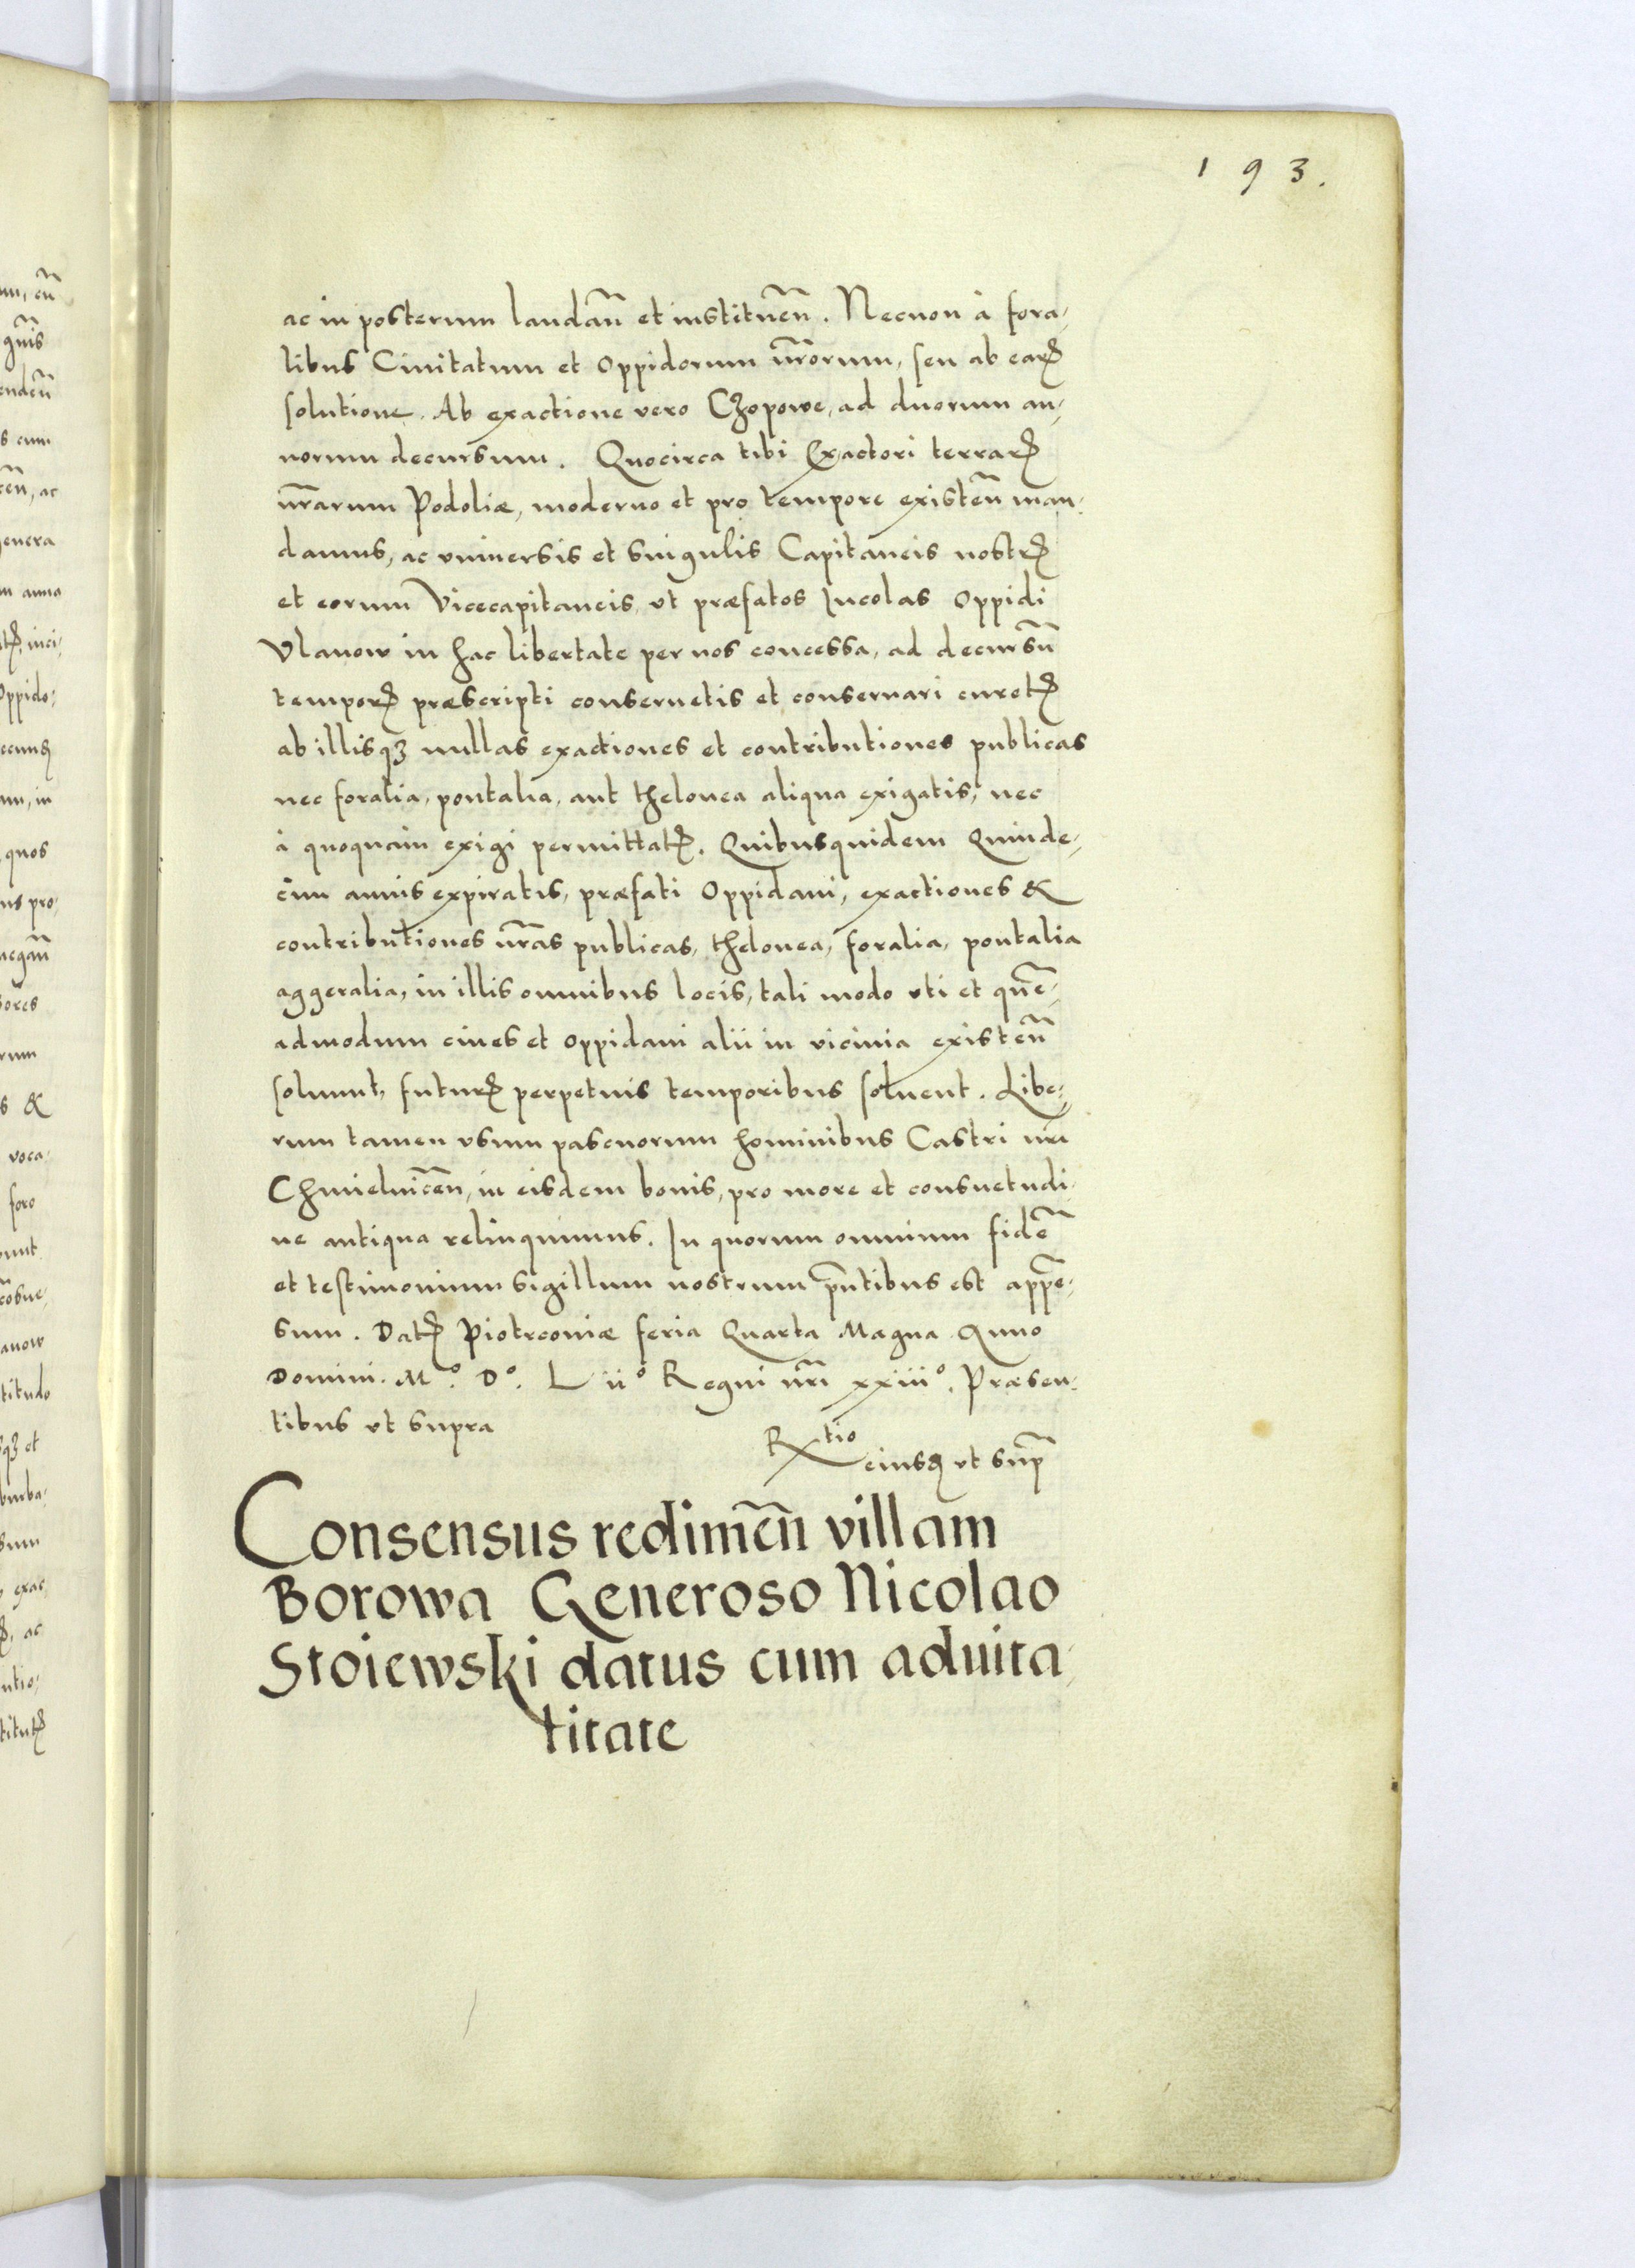 193.
ac in posterum laudañ et instituen̄. Necnon à fora-
libus Ciuitatum et Oppidorum nr̃orum, seu ab earꝝ
solutione. Ab exactione vero Czopowe, ad duorum an-
norum decursum. Quocirca tibi Exactori terrarꝝ
nr̃arum Podoliæ, moderno et pro tempore existen̄ man-
damus, ac vniuersis et singulis Capitaneis nostrꝭ
et eorum Vicecapitaneis, vt præfatos Incolas Oppidi
Vlanow in hac libertate per nos concessa, ad decursū
temporꝭ præscripti conseruetis et conseruari curetꝭ
ab illisqꝫ nullas exactiones et contributiones publicas
nec foralia, pontalia, aut thelonea aliqua exigatis, nec
à quoquam exigi permittatꝭ. Quibusquidem Quinde-
cim annis expiratis, præfati Oppidani, exactiones &
contributiones nr̃as publicas, thelonea, foralia, pontalia
aggeralia, in illis omnibus locis, tali modo vti et quē-
admodum ciues et Oppidani alii in vicinia existen̄
soluunt, futurꝭ perpetuis temporibus soluent. Libe-
rum tamen vsum pascuorum hominibus Castri nr̃i
Chmielnicen̄, in eisdem bonis, pro more et consuetudi-
ne antiqua relinquimus. In quorum omnium fidē
et testimonium sigillum nostrum p̃ntibus est appē-
sum. Datꝭ Piotrcouiæ feria Quarta Magna Anno
Domini. Mº. Dº. L iiº Regni nr̃i xxiiiº. Præsen-
tibus vt supra
Rtio
eiusꝗ vt sup̃
Consensus redimen̄ villam
Borowa Generoso Nicolao
Stoiewski datus cum aduita-
titate